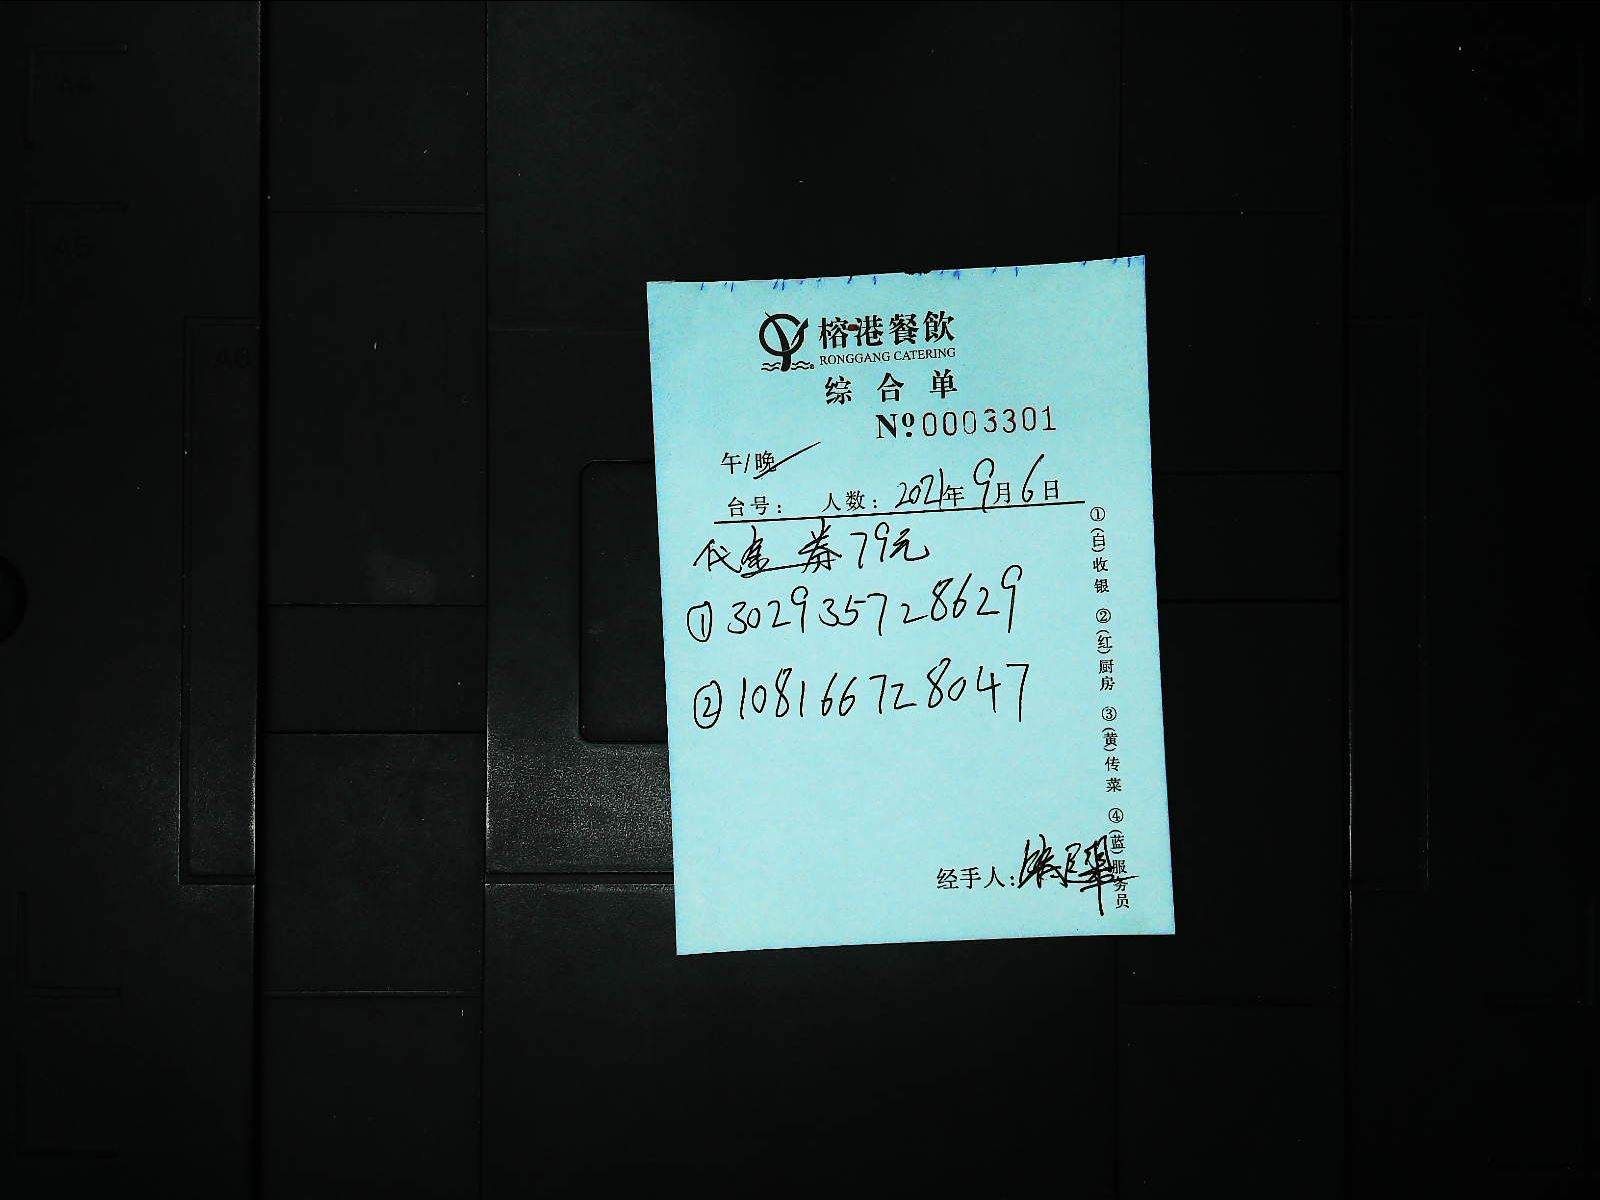 榕港餐飲
RONGGANG CATERING
综合单
Nº0003301
午/晚
台号: 人数: 2021年9月6日
代金券79元
①302935728629
②108166728047
经手人:
①(白)收银 ②(红)厨房 ③(黄)传菜 ④(蓝)服务员